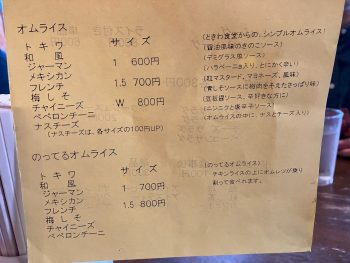 オムライス サイズ (ときわ食堂からの、シンプルオムライス)
トキワ
和風 (醤油風味のきのこソース)
ジャーマン 1 600円 (デミグラス風ソース)
メキシカン (ハラペーニョ入り、とにかく辛い)
フレンチ 1.5 700円 (粒マスタード、マヨネーズ、風味)
梅しそ (青しそソースに梅肉を添えたさっぱり味)
チャイニーズ W 800円 (豆板醤ソース、辛好きな方に)
ペペロンチーニ (ニンニクと唐辛子ソース)
ナスチーズ (オムライスの中に、ナスとチーズ入り)
(ナスチーズは、各サイズの100円UP)
のってるオムライス サイズ (のってるオムライス)
トキワ チキンライスの上にオムレツが乗り
和風 割って食べれます。
ジャーマン 1 700円
メキシカン
フレンチ 1.5 800円
梅しそ
チャイニーズ
ペペロンチーニ